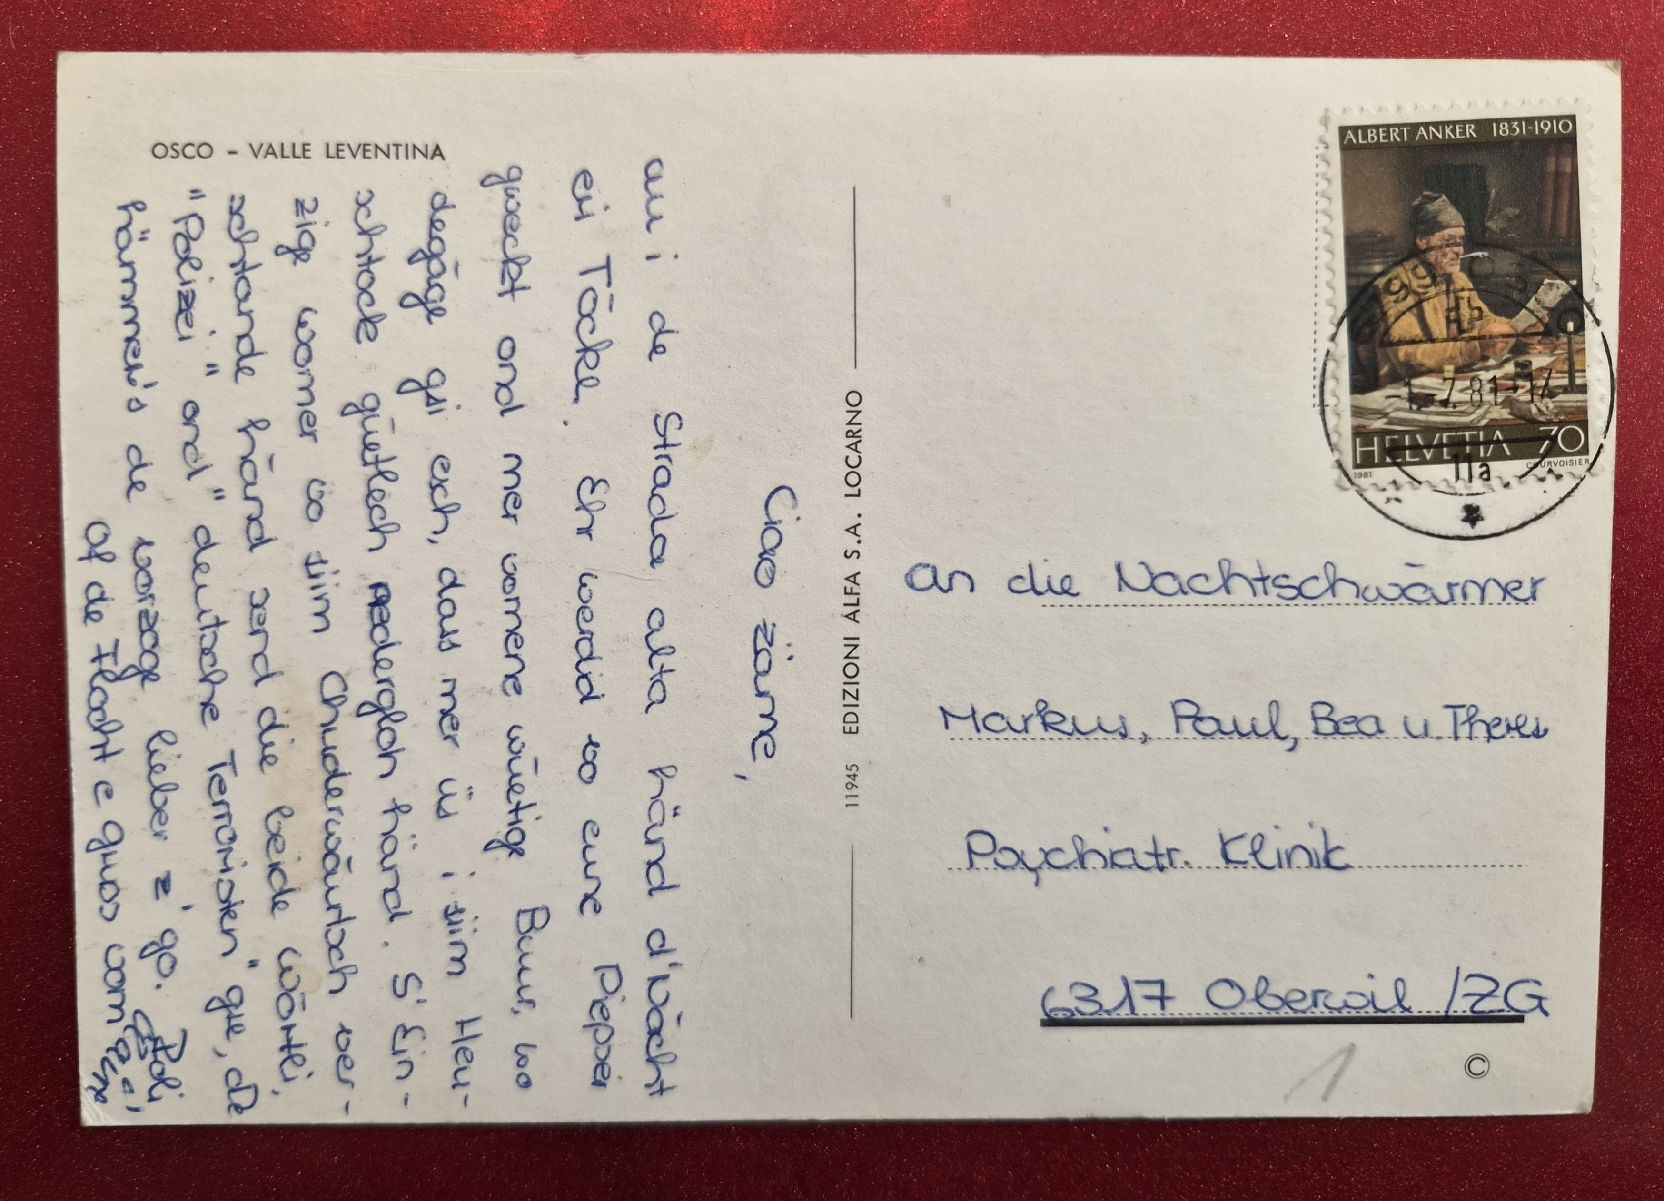 OSCO – VALLE LEVENTINA
Ciao zäme,
au i de Strada alta händ d'Nächt
ei Töckl. Ehr werdid so eine Piepser
gweckt ond mer vomene wüetige Buur, wo
degäge gsi esch, dass mer üs i siim Heu-
schtock güetlech nedergloh händ. S'Ein-
zige womer vo siim Chuderwältsch ver-
schtande händ send die beide Wörtli,
"Polizei" ond "deutsche Terroristen" gse, do
hämmer's de vorzoge lieber z'go.
Of de Flocht e gruss vom
Edoli
11945 EDIZIONI ALFA S.A. LOCARNO
ALBERT ANKER 1831-1910
HELVETIA 70
1981 COURVOISIER
-1.-7.81-17
11a
An die Nachtschwärmer
Markus, Paul, Bea u. Theres
Psychiatr. Klinik
6317 Oberwil /ZG
1
©